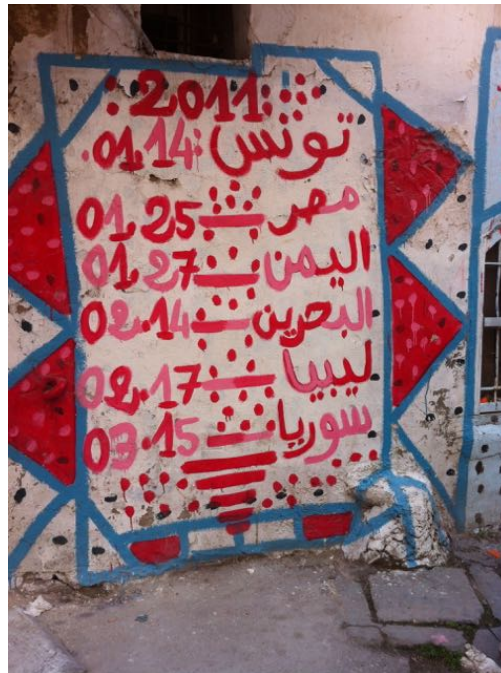 :2011:
01.14: تونس
01.25 — مصر
01.27 — اليمن
02.14 — البحرين
02.17 — ليبيا
03.15 — سوريا